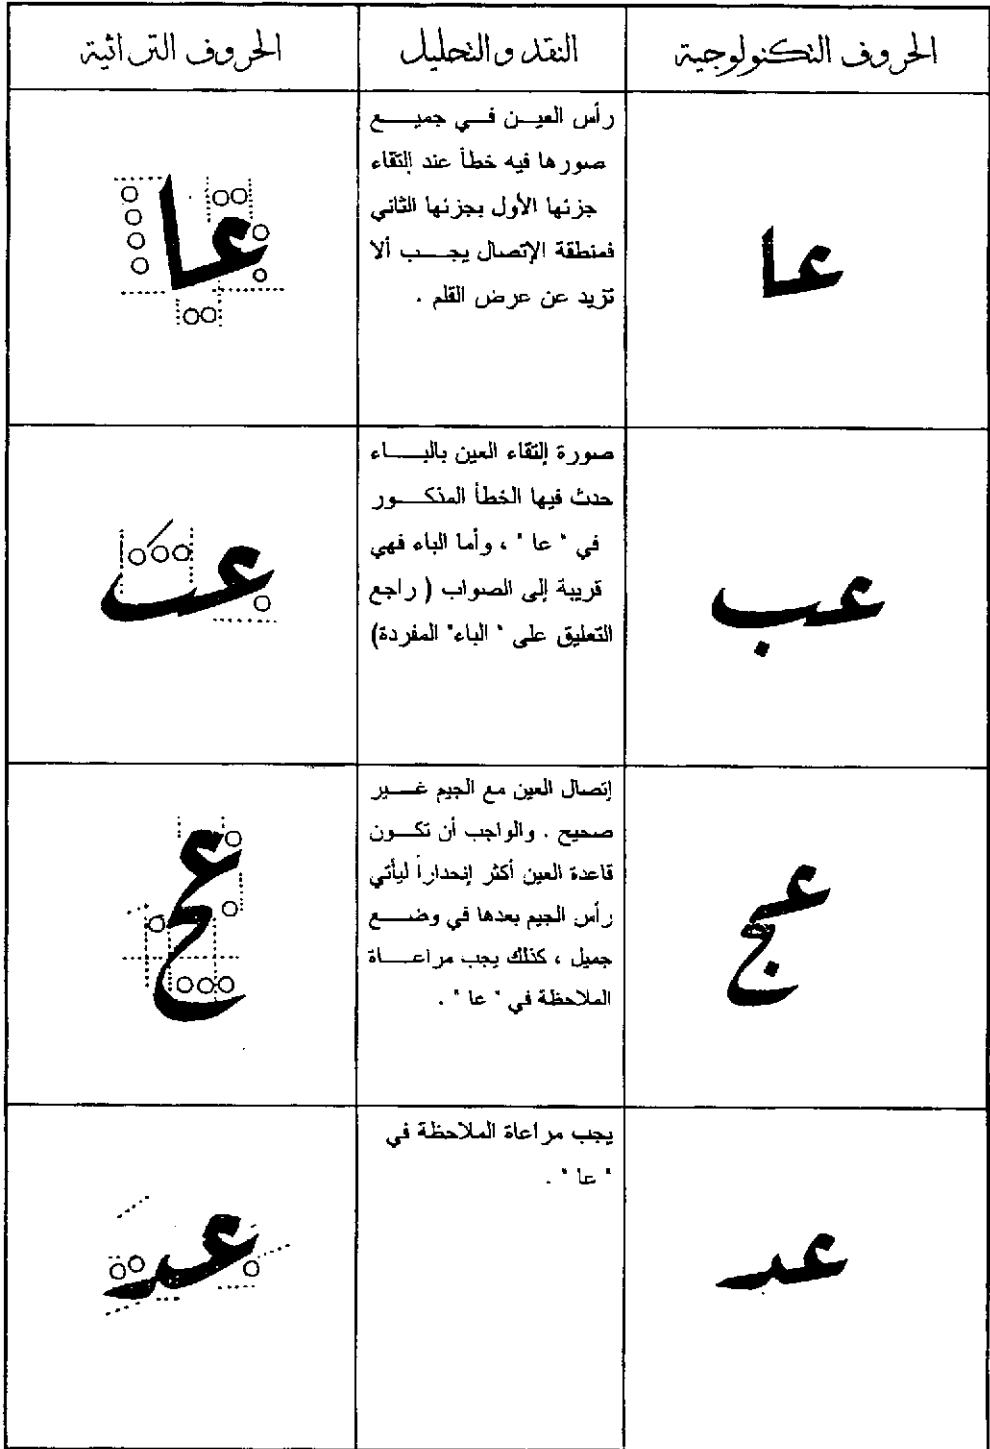 الحروف التكنولوجية
النقد والتحليل
الحروف التراثية
عا
رأس العين في جميع
صورها فيه خطأ عند إلتقاء
جزئها الأول بجزئها الثاني
فمنطقة الإتصال يجب ألا
تزيد عن عرض القلم .
عا
عب
صورة إلتقاء العين بالباء
حدث فيها الخطأ المذكور
في " عا " ، وأما الباء فهي
قريبة إلى الصواب ( راجع
التعليق على " الباء" المفردة)
عٮ
عج
إتصال العين مع الجيم غير
صحيح . والواجب أن تكون
قاعدة العين أكثر إنحداراً ليأتي
رأس الجيم بعدها في وضع
جميل ، كذلك يجب مراعاة
الملاحظة في " عا " .
عح
عد
يجب مراعاة الملاحظة في
" عا " .
عد